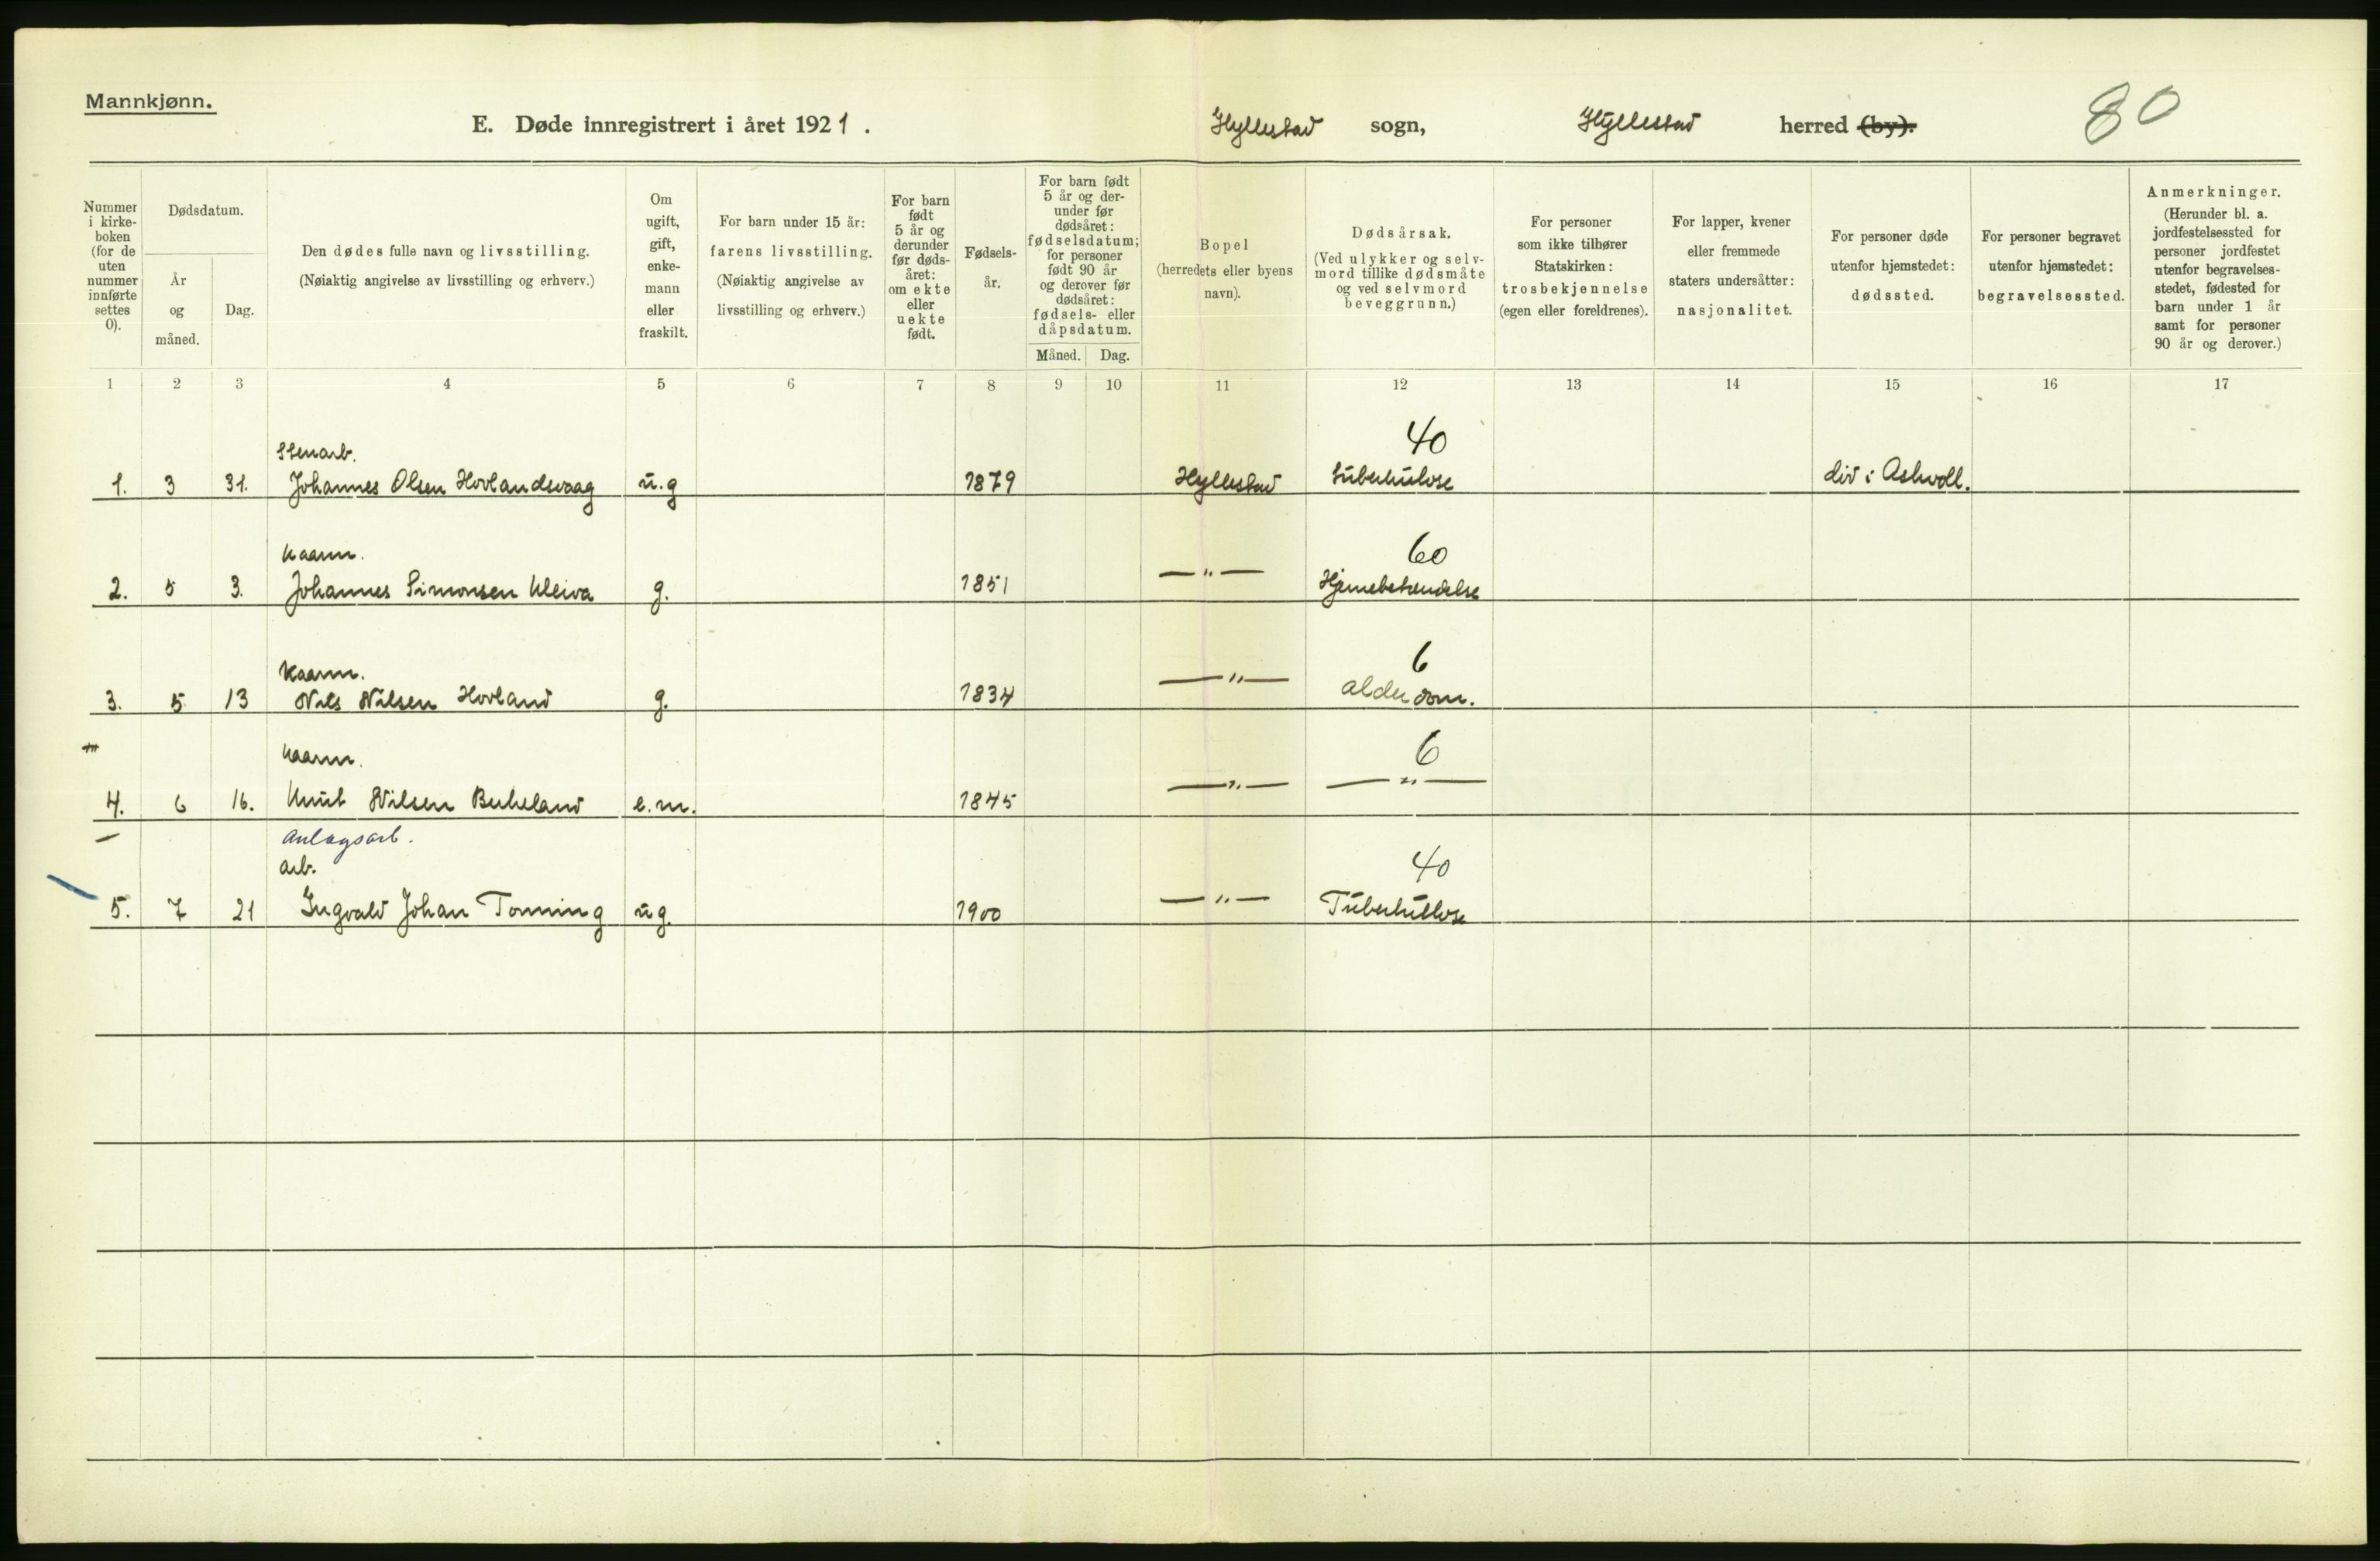 Mannkjønn.
E. Døde innregistrert i året 1921. Hyllestad sogn, Hyllestad herred (by). 80
Nummer i kirke-boken (for de uten nummer innførte settes 0).
Dødsdatum.
År og måned.
Dag.
Den dødes fulle navn og livsstilling.
(Nøiaktig angivelse av livsstilling og erhverv.)
Om ugift, gift, enke-mann eller fraskilt.
For barn under 15 år:
farens livsstilling.
(Nøiaktig angivelse av livsstilling og erhverv.)
For barn født 5 år og derunder før døds-året: om ekte eller uekte født.
Fødsels-år.
For barn født 5 år og der-under før dødsåret: fødselsdatum; for personer født 90 år og derover før dødsåret: fødsels- eller dåpsdatum.
Måned. Dag.
Bopel
(herredets eller byens navn).
Dødsårsak.
(Ved ulykker og selv-mord tillike dødsmåte og ved selvmord beveggrunn.)
For personer som ikke tilhører Statskirken:
trosbekjennelse
(egen eller foreldrenes).
For lapper, kvener eller fremmede staters undersåtter:
nasjonalitet.
For personer døde utenfor hjemstedet:
dødssted.
For personer begravet utenfor hjemstedet:
begravelsessted.
Anmerkninger.
(Herunder bl. a. jordfestelsessted for personer jordfestet utenfor begravelses-stedet, fødested for barn under 1 år samt for personer 90 år og derover.)
1 2 3 4 5 6 7 8 9 10 11 12 13 14 15 16 17
Stenarb. 40
1. 3 31. Johannes Olsen Hovlandsvaag u.g 1879 Hyllestad tuberkulose død i Askvoll.
kaarm. 60
2. 5 3. Johannes Simonsen Kleiva g. 1851 —"— Hjernebetændelse
Kaarm. 6
3. 5 13 Nils Nilsen Hovland g. 1834 —"— alderdom.
kaarm. 6
4. 6 16. Knut Nilsen Bukeland e.m. 1845 —"— —"—
Anlægsarb.
arb. 40
5. 7 21 Ingvald Johan Tonning ug. 1900 —"— Tuberkullose